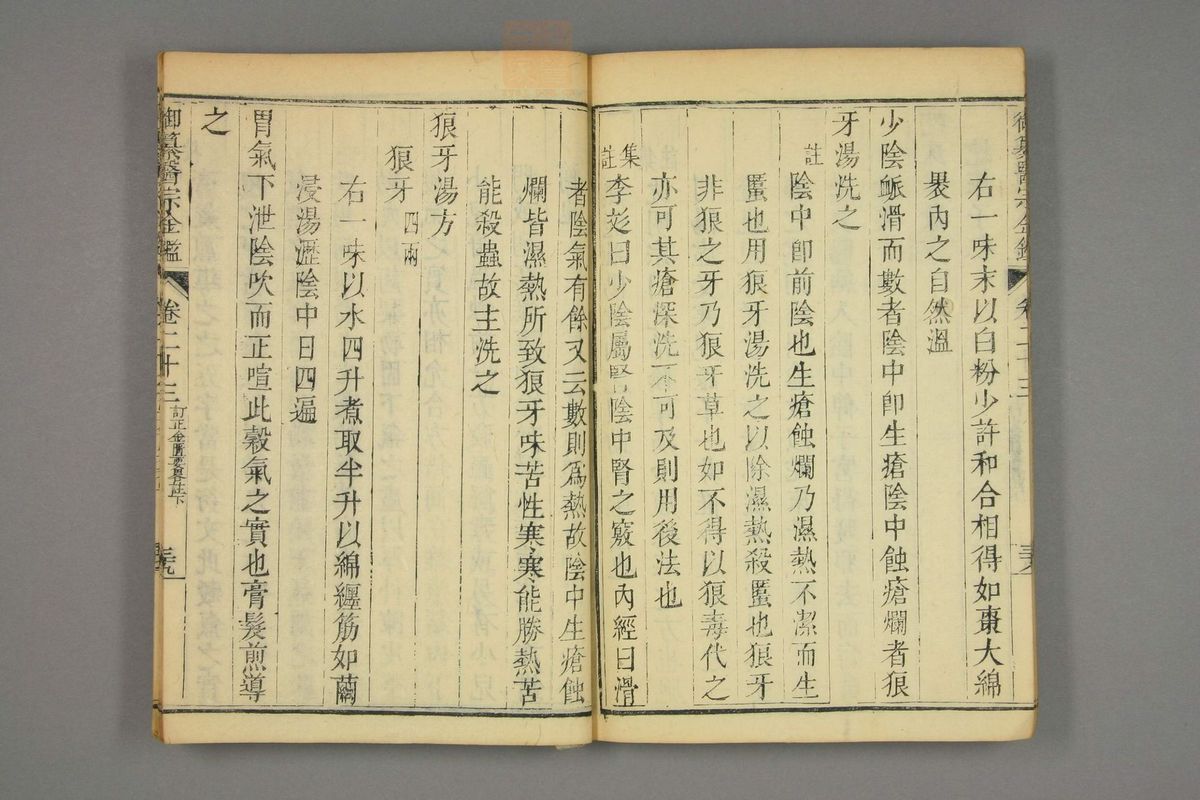 右一味末以白粉少許和合相得如棗大綿
褁內之自然溫
少陰脈滑而數者陰中卽生瘡陰中蝕瘡爛者狼
牙湯洗之
註
陰中卽前陰也生瘡蝕爛乃濕熱不潔而生
䘌也用狼牙湯洗之以除濕熱殺䘌也狼牙
非狼之牙乃狼牙草也如不得以狼毒代之
亦可其瘡深洗不可及則用後法也
集註
李彣曰少陰屬腎陰中腎之竅也內經曰滑
者陰氣有餘又云數則爲熱故陰中生瘡蝕
爛皆濕熱所致狼牙味苦性寒寒能勝熱苦
能殺蟲故主洗之
狼牙湯方
狼牙四兩
右一味以水四升煮取半升以綿纏筯如繭
浸湯瀝陰中日四遍
胃氣下泄陰吹而正喧此穀氣之實也膏髮煎導
之
御纂醫宗金鑑
卷二十三
訂正金匱要畧註下